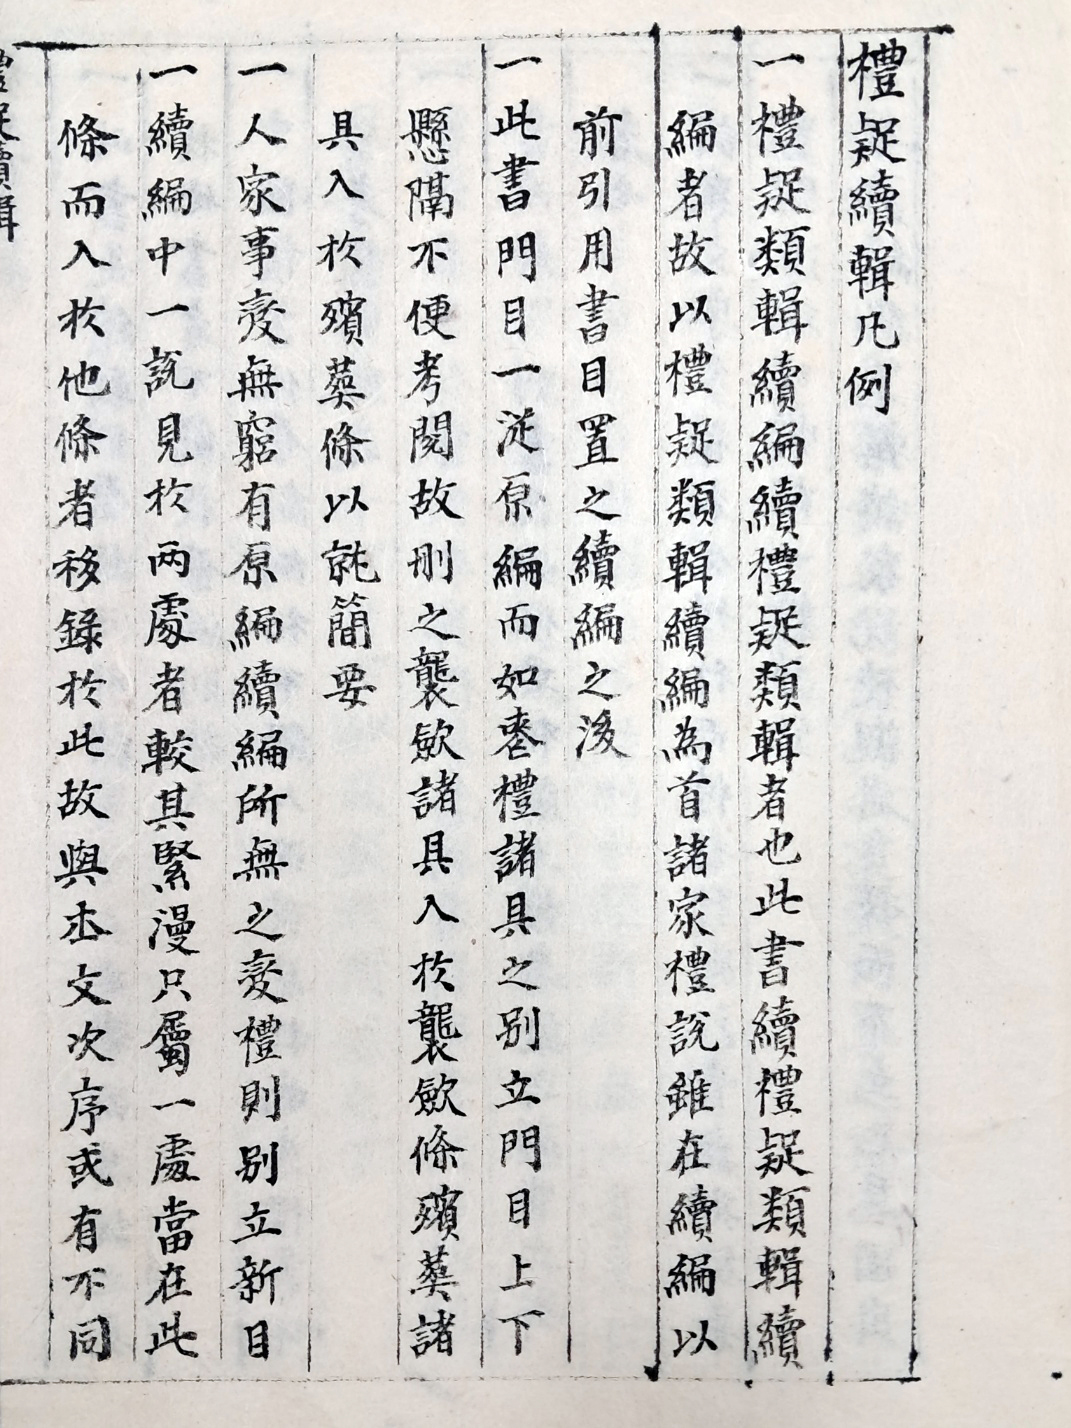 禮疑續輯凡例
一禮疑類輯續編續禮疑類輯者也此書續禮疑類輯續
編者故以禮疑類輯續編為首諸家禮說雖在續編以
前引用書目置之續編之後
一此書門目一從原編而如喪禮諸具之別立門目上下
懸隔不便考閱故刪之襲斂諸具入於襲斂條殯葬諸
具入於殯葬條以就簡要
一人家事變無窮有原編續編所無之變禮則別立新目
一續編中一說見於兩處者較其緊漫只屬一處當在此
條而入於他條者移錄於此故與本文次序或有不同
禮疑續輯